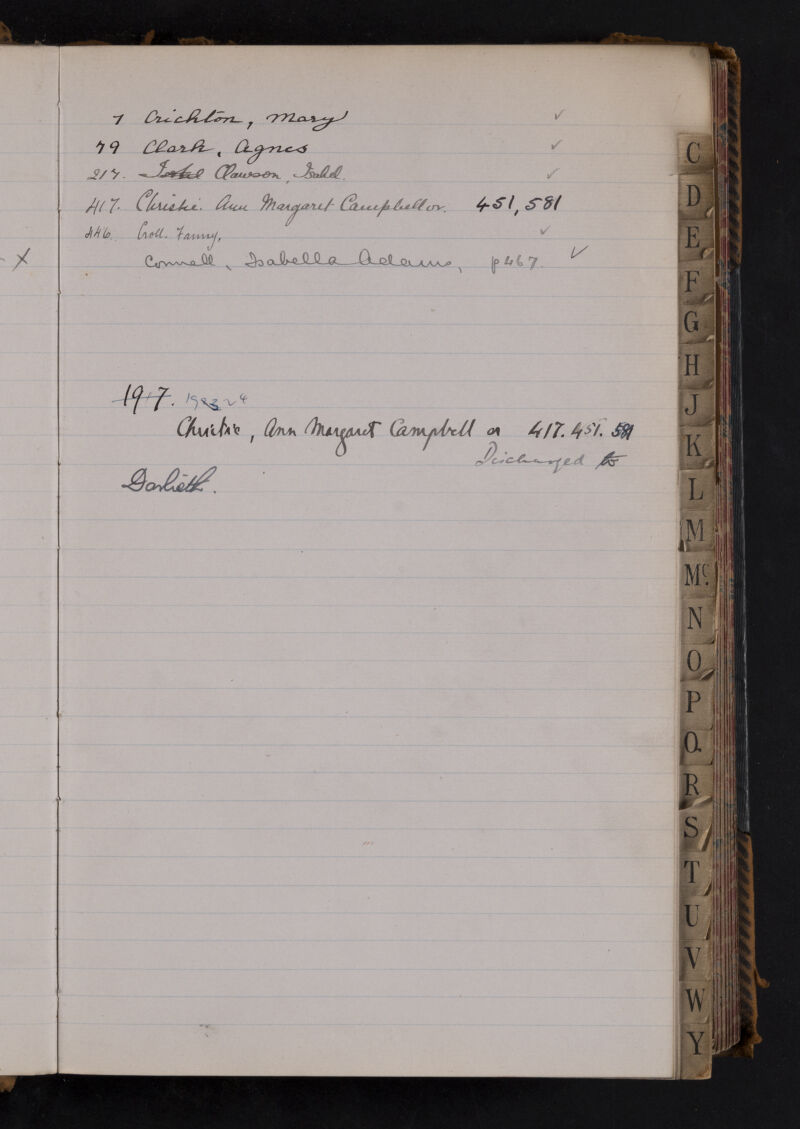 7 Crichton, Mary ✓
79 Clark, Agnes ✓
217. Clawson, Isabel. ✓
417. Christie. Ann Margaret Campbell or. 451, 581
446. Croll. Fanny. ✓
X Connell, Isabella Adams, p 467. ✓
1917.
Christie, Ann Margaret Campbell or 417. 451. 581
Discharged to
C
D
E
F
G
H
J
K
L
M
Mc.
N
O
P
Q.
R
S
T
U
V
W
Y